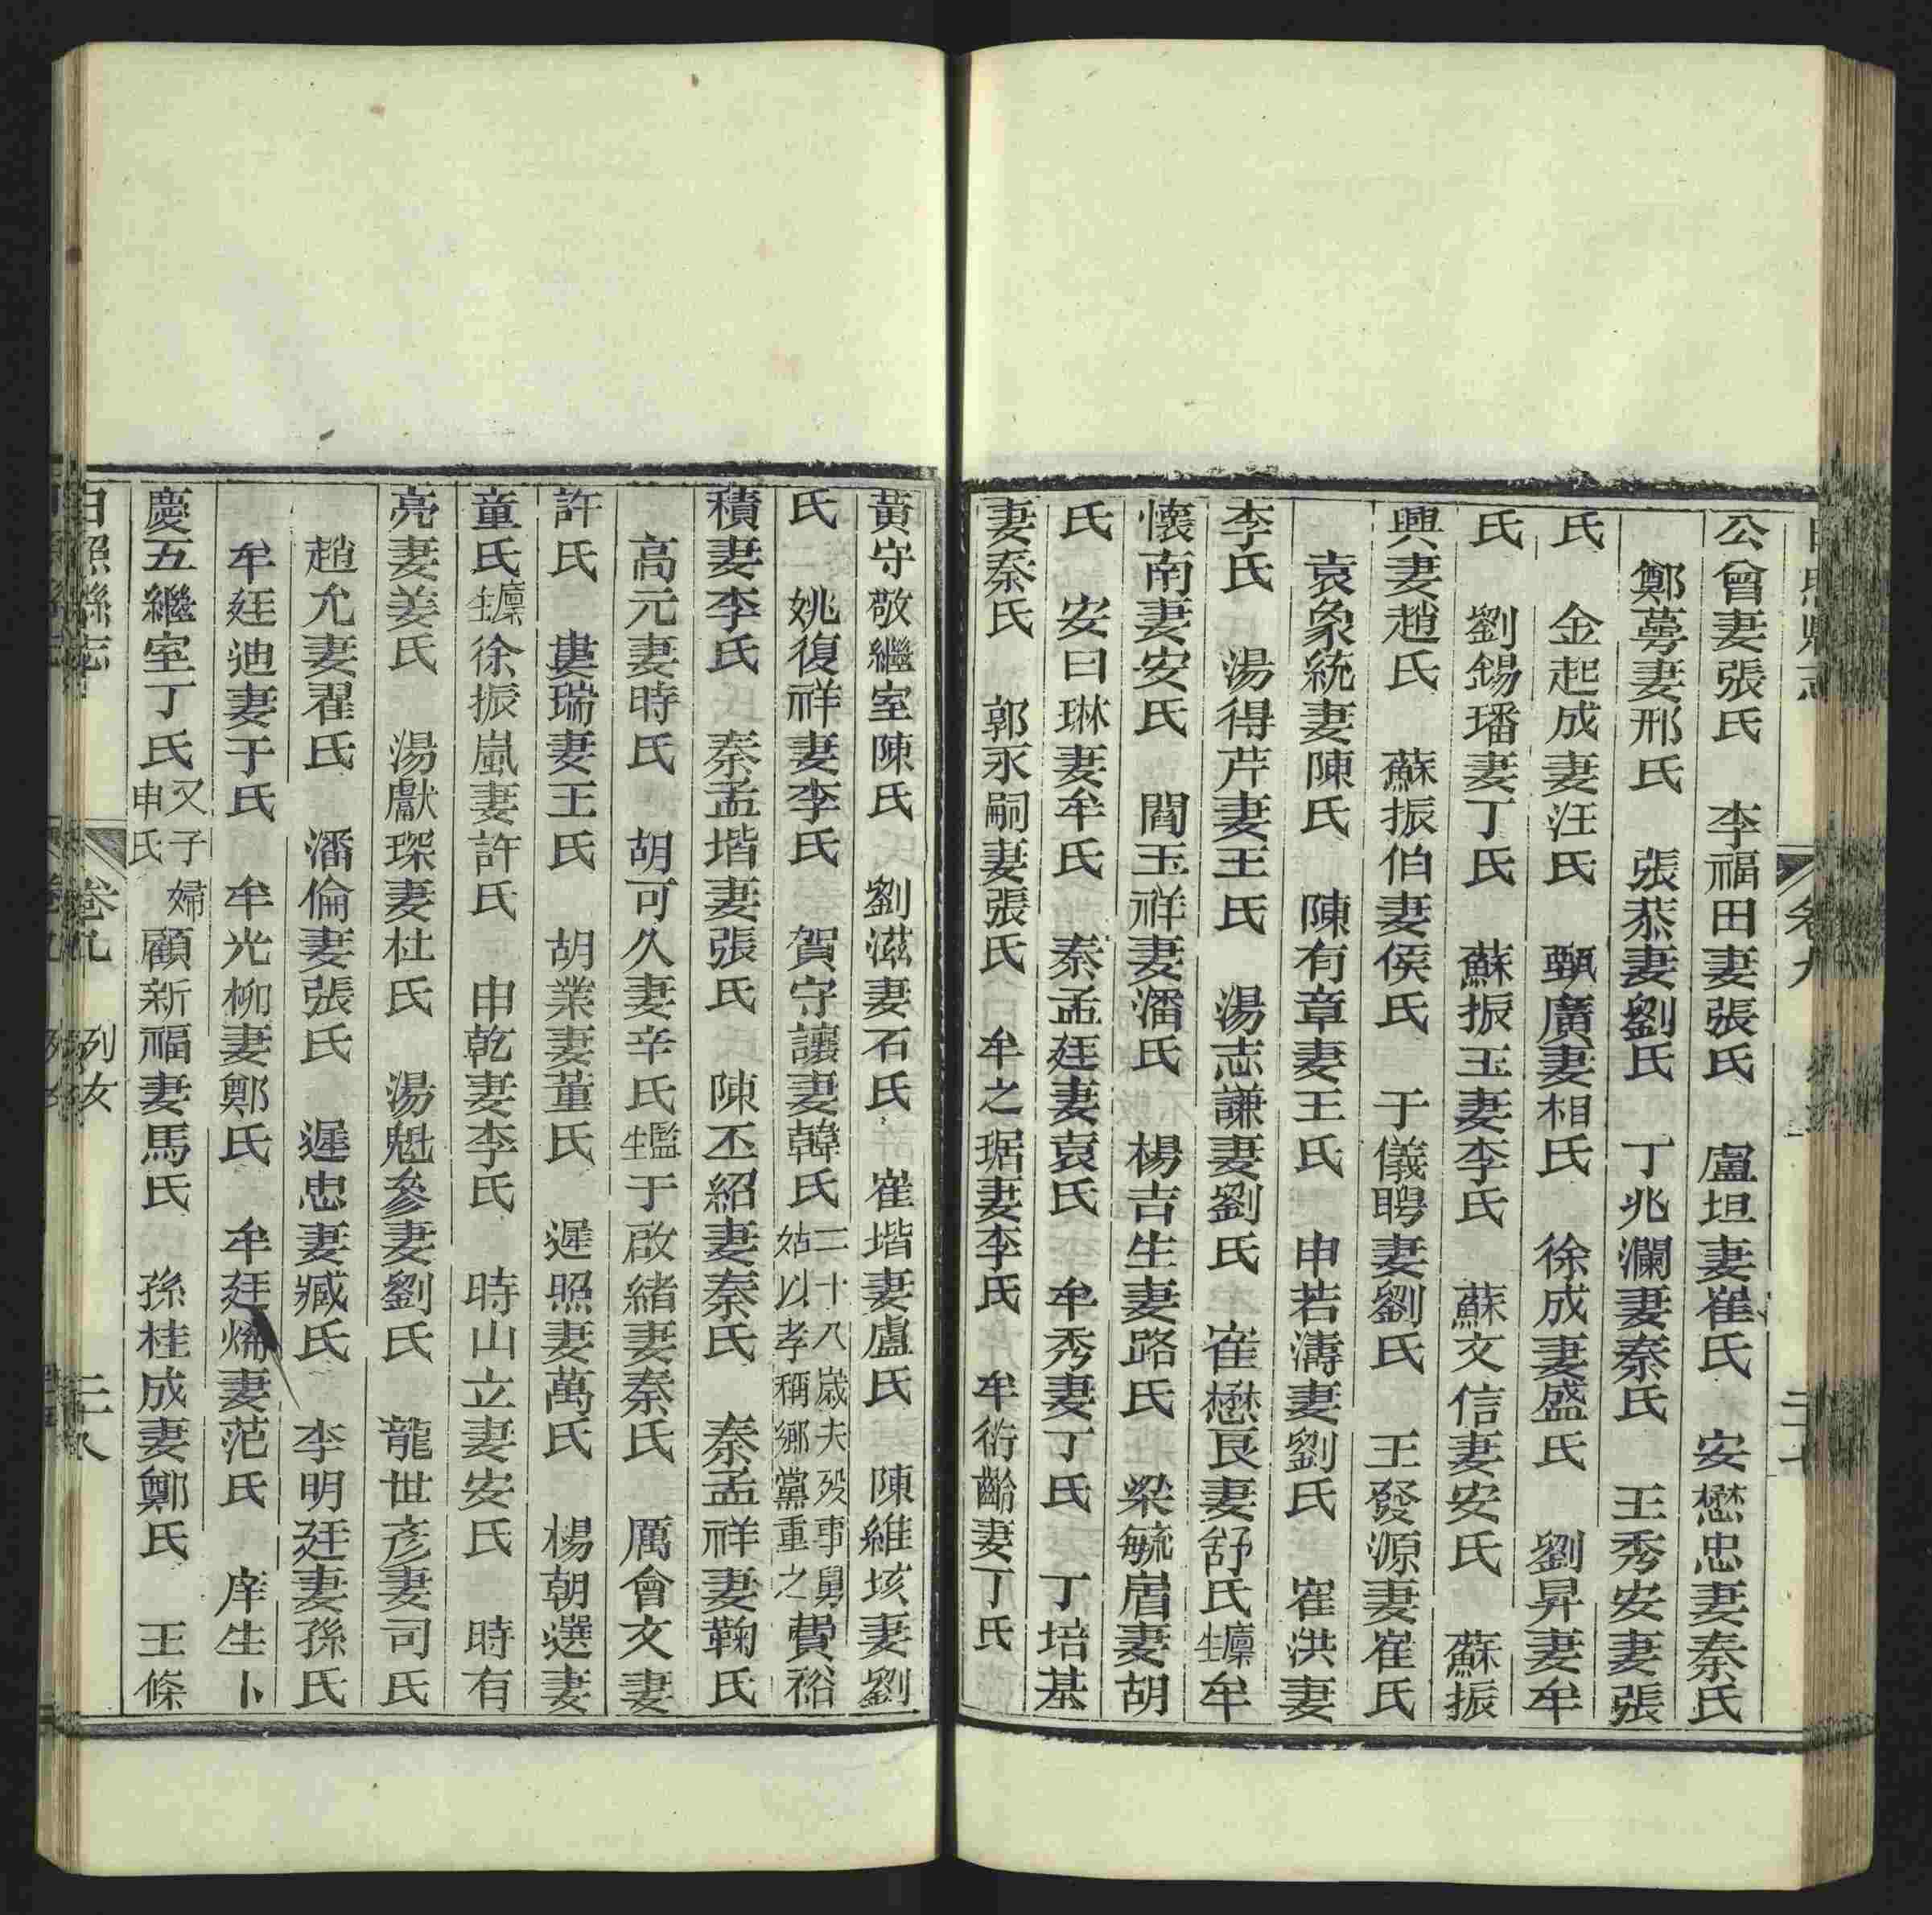 公曾妻張氏　李福田妻張氏　盧坦妻崔氏　安懋忠妻秦氏
鄭萼妻邢氏　張恭妻劉氏　丁兆瀾妻秦氏　王秀安妻張
氏　金起成妻汪氏　甄廣妻相氏　徐成妻盛氏　劉昇妻牟
氏　劉錫璠妻丁氏　蘇振玉妻李氏　蘇文信妻安氏　蘇振
興妻趙氏　蘇振伯妻侯氏　于儀聘妻劉氏　王發源妻崔氏
袁象統妻陳氏　陳有章妻王氏　申若濤妻劉氏　崔洪妻
李氏　湯得芹妻王氏　湯志謙妻劉氏　崔懋良妻舒氏　廩生牟
懷南妻安氏　閻玉祥妻潘氏　楊吉生妻路氏　梁毓眉妻胡
氏　安曰琳妻牟氏　秦孟廷妻袁氏　牟秀妻丁氏　丁培基
妻秦氏　郭永嗣妻張氏　牟之琚妻李氏　牟衍齡妻丁氏
黃守敬繼室陳氏　劉滋妻石氏　崔堦妻盧氏　陳維垓妻劉
氏　姚復祥妻李氏　賀守讓妻韓氏　二十八歲夫歿事舅姑以孝稱鄉黨重之　費裕
積妻李氏　秦孟堦妻張氏　陳丕紹妻秦氏　秦孟祥妻鞠氏
高元妻時氏　胡可久妻辛氏　監生于啟緒妻秦氏　厲會文妻
許氏　婁瑞妻王氏　胡業妻董氏　遲照妻萬氏　楊朝選妻
童氏　廩生徐振嵐妻許氏　申乾妻李氏　時山立妻安氏　時有
亮妻姜氏　湯獻琛妻杜氏　湯魁參妻劉氏　龍世彥妻司氏
趙允妻翟氏　潘倫妻張氏　遲忠妻臧氏　李明廷妻孫氏
牟廷迪妻于氏　牟光柳妻鄭氏　牟廷妻范氏　庠生卜
慶五繼室丁氏　又子婦申氏　顧新福妻馬氏　孫桂成妻鄭氏　王條
日照縣志　卷九　列女　二十八